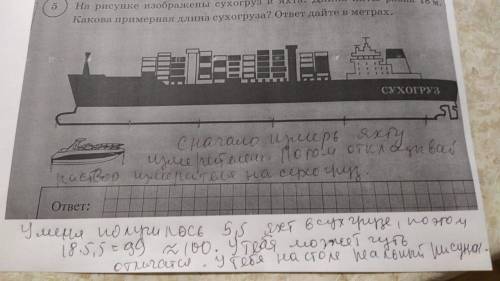 5 На рисунке изображены сухогруз и яхта. Длина яхты равна 18 м.
Какова примерная длина сухогруза? Ответ дайте в метрах.
СУХОГРУЗ
Сначало измерь яхту
измерителем. Потом откладывай
раствор измерителя на сухогруз.
Ответ:
У меня получилось 5,5 яхт в сухгрузе, поэтом
18.5,5=99 ≈100. У тебя может чуть
отличатся. У тебя на столе реальный рисунок.